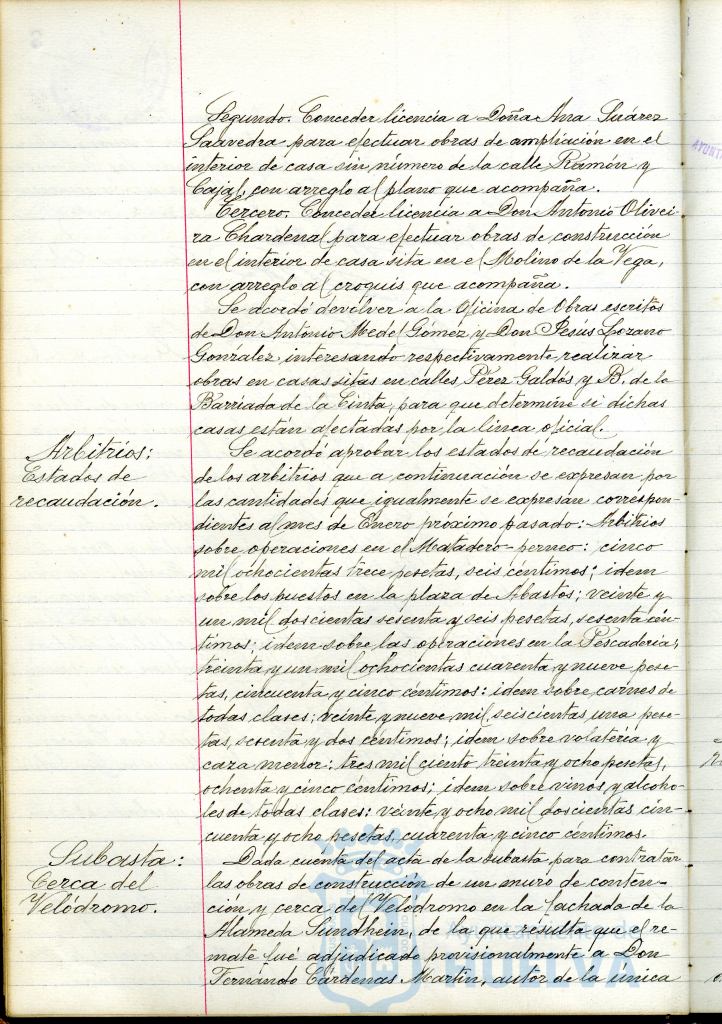 Segundo. Conceder licencia a Doña Ana Suárez
Saavedra para efectuar obras de ampliación en el
interior de casa sin número de la calle Ramón y
Cajal, con arreglo al plano que acompaña.
Tercero. Conceder licencia a Don Antonio Olivei-
ra Chardenal para efectuar obras de construcción
en el interior de casa sita en el Molino de la Vega,
con arreglo al croquis que acompaña.
Se acordó devolver a la Oficina de Obras escritos
de Don Antonio Medel Gómez y Don Jesús Lozano
Gonzalez interesando respectivamente realizar
obras en casas sitas en calles Pérez Galdós y B. de la
Barriada de la Cinta, para que determine si dichas
casas están afectadas por la línea oficial.
Arbitrios:
Estados de
recaudación.
Se acordó aprobar los estados de recaudación
de los arbitrios que a continuación se expresan por
las cantidades que igualmente se expresan correspon-
dientes al mes de Enero próximo pasado: Arbitrios
sobre operaciones en el Matadero-perneo: cinco
mil ochocientas trece pesetas, seis céntimos; idem
sobre los puestos en la plaza de Abastos; veinte y
un mil doscientas sesenta y seis pesetas, sesenta cén-
timos; idem sobre las operaciones en la Pescadería;
treinta y un mil ochocientas cuarenta y nueve pese-
tas, cincuenta y cinco céntimos: idem sobre carnes de
todas clases; veinte y nueve mil, seiscientas una pese-
tas, sesenta y dos céntimos; idem sobre volatería y
caza menor: tres mil ciento treinta y ocho pesetas,
ochenta y cinco céntimos; idem sobre vinos y alcoho-
les de todas clases: veinte y ocho mil doscientas cin-
cuenta y ocho pesetas, cuarenta y cinco céntimos.
Subasta:
Cerca del
Velódromo.
Dada cuenta del acta de la subasta para contratar
las obras de construcción de un muro de conten-
ción y cerca del Velódromo en la fachada de la
Alameda Sundhein, de la que resulta que el re-
mate fué adjudicado provisionalmente a Don
Fernando Cárdenas Martin, autor de la única